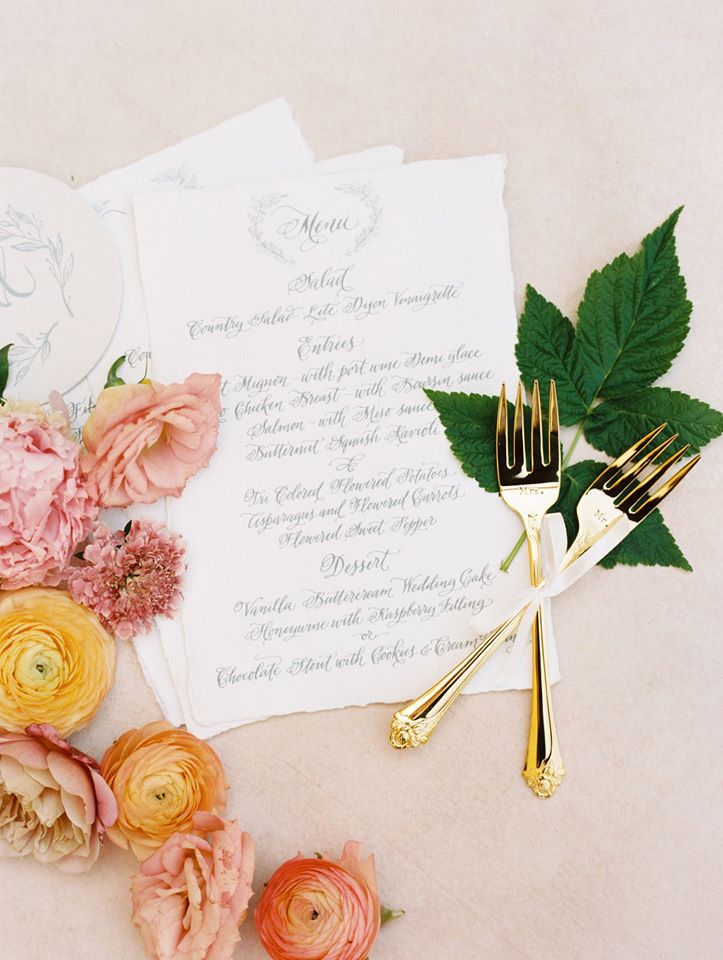 Menu
Salad
Country Salad - Lite Dijon Vinaigrette
Entrées
Mignon - with port wine Demi glace
Chicken Breast - with Boursin sauce
Salmon - with Miso sauce
Butternut Squish Ravioli
&
Tri Colored Flowered Potatoes
Asparagus and Flowered Carrots
Flowered Sweet Pepper
Dessert
Vanilla Buttercream Wedding Cake
Honeywine with Raspberry Filling
or
Chocolate Stout with Cookies & Cream
Mrs.
Mr.